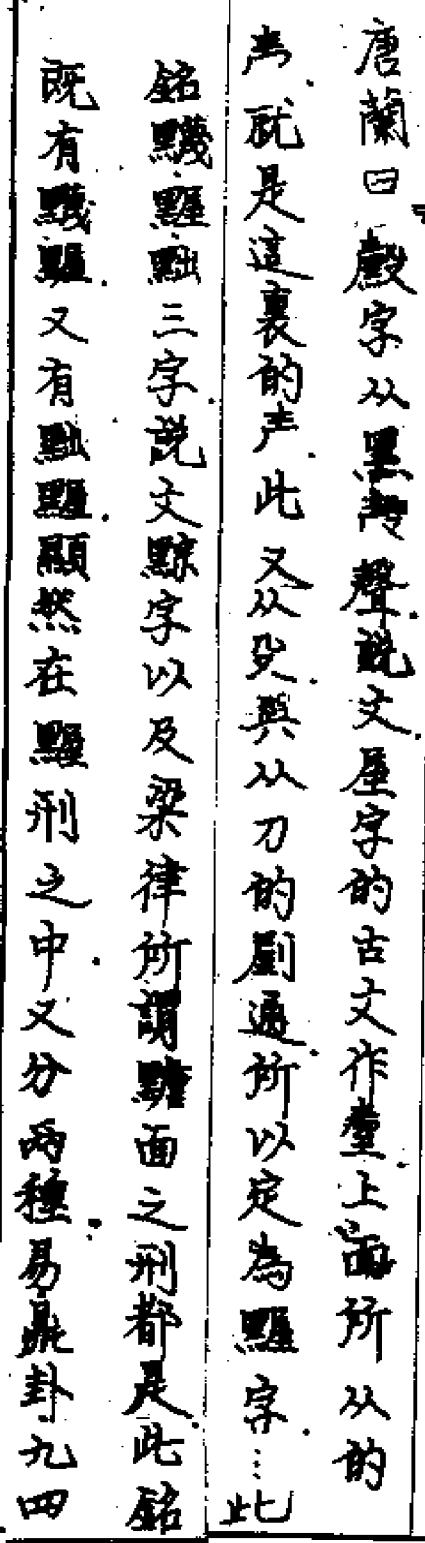 唐蘭曰字从黑聲說文屋字的古文作臺上面所从的
就是這裏的声此又从殳與从刀的剭通所以定為䵠字…此
銘䵠三字說文黥字以及梁律所謂面之刑都是此銘
既有䵠又有䵠顯然在䵠刑之中又分兩種易鼎卦九四